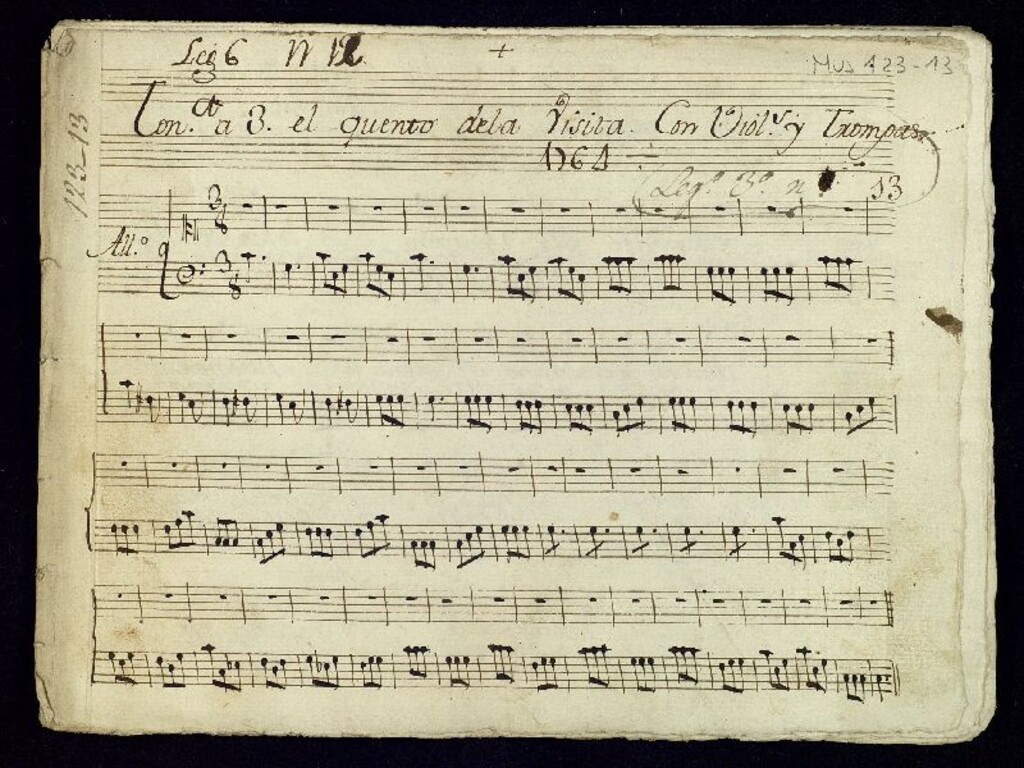 Leg 6 N 12.
+
Mus 123-13
Ton.ª a 3. el quento dela Visita. Con Viol.ˢ y Trompas
1764
Leg.º 3.º n 13
123-13
3
8
All.º
3
8